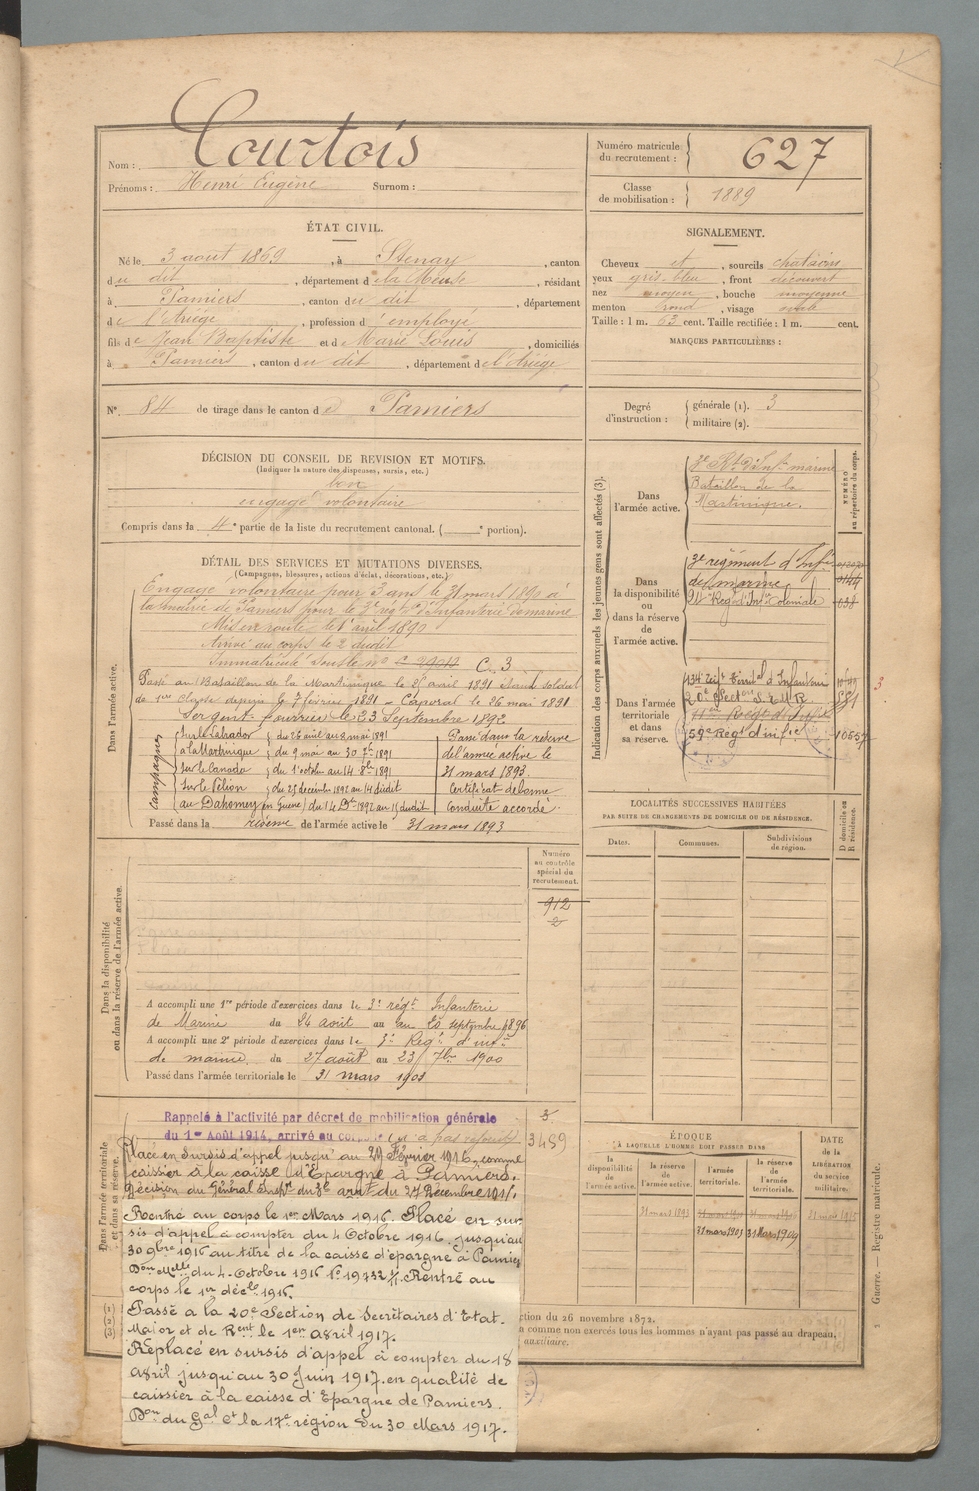 Nom : Courtois
Prénoms : Henri Eugène Surnom :
Numéro matricule du recrutement : 627
Classe de mobilisation : 1889
ÉTAT CIVIL.
Né le 3 août 1869, à Stenay, canton
du dit, département de la Meuse, résidant
à Pamiers, canton du dit, département
de l'Ariége, profession d'employé
fils de Jean Baptiste et de Marie Louis, domiciliés
à Pamiers, canton du dit, département de l'Ariége
N°. 84 de tirage dans le canton de Pamiers
SIGNALEMENT.
Cheveux et, sourcils chatains
yeux gris-bleu, front découvert
nez moyen, bouche moyenne
menton rond, visage ovale
Taille : 1 m. 63 cent. Taille rectifiée : 1 m. cent.
MARQUES PARTICULIÈRES :
Degré d'instruction : générale (1). 3
militaire (2).
DÉCISION DU CONSEIL DE REVISION ET MOTIFS.
(Indiquer la nature des dispenses, sursis, etc.)
bon
engagé volontaire
Compris dans la 4e partie de la liste du recrutement cantonal. ( e portion).
DÉTAIL DES SERVICES ET MUTATIONS DIVERSES.
(Campagnes, blessures, actions d'éclat, décorations, etc.)
Dans l'armée active.
Engagé volontaire pour 3 ans le 31 mars 1890 à
la mairie de Pamiers pour le 3e régt d'Infanterie de marine
Mis en route le 1er avril 1890
Arrivé au corps le 2 dudit
Immatriculé sous le n° C. 3
Passé au Bataillon de la Martinique le 26 avril 1891 étant soldat
de 1ere Classe depuis le 7 février 1891 - Caporal le 26 mai 1891
Sergent fourrier le 23 Septembre 1892
Campagnes
Sur le Labrador du 26 avril au 8 mai 1891
à la Martinique du 9 mai au 30 7bre 1891
Sur le Canada du 1er octobre au 14 8bre 1891
Sur le Pélion du 25 décembre 1892 au 14 dudit
au Dahomey (en Guerre) du 14 Dbre 1892 au 15 dudit
Passé dans la réserve
de l'armée active le
31 mars 1893.
Certificat de bonne
Conduite accordé.
Passé dans la réserve de l'armée active le 31 mars 1893
Indication des corps auxquels les jeunes gens sont affectés (3).
NUMÉRO au répertoire du corps.
Dans l'armée active.
3e Rt d'Infie marine
Bataillon de la
Martinique.
Dans la disponibilité ou dans la réserve de l'armée active.
3e régiment d'Infie
de marine
Régt d'Infie Coloniale 038
Dans l'armée territoriale et dans sa réserve.
134e Régt Territal d'Infanterie
20e Section S.E.M.R 581
Régt d'Infie
59e Régt d'infie 10557
3
LOCALITÉS SUCCESSIVES HABITÉES
PAR SUITE DE CHANGEMENTS DE DOMICILE OU DE RÉSIDENCE.
Dates. Communes. Subdivisions de région. D domicile ou R résidence.
Numéro au contrôle spécial du recrutement.
912
2
Dans la disponibilité ou dans la réserve de l'armée active.
A accompli une 1re période d'exercices dans le 3e régt Infanterie
de Marine du 24 août au 20 septembre 1896
A accompli une 2e période d'exercices dans le 3e Régt d'infie
de marine du 27 août au 23 7bre 1900
Passé dans l'armée territoriale le 31 mars 1903
Dans l'armée territoriale et dans sa réserve.
Rappelé à l'activité par décret de mobilisation générale
du 1er Août 1914, arrivé au corps le (n'a pas rejoint)
3
3489
Placé en Sursis d'appel jusqu'au 29 Février 1916, comme
caissier à la caisse d'Epargne à Pamiers.
Décision du Général Inspr du 3e arrt du 27 Décembre 1915.
Rentré au corps le 1er Mars 1916. Placé en sur
sis d'appel à compter du 4 Octobre 1916 jusqu'au
30 9bre 1916 au titre de la caisse d'epargne à Pamiers
Don Melle du 4 Octobre 1916 N° 19732 . Rentré au
corps le 1er décbre 1916.
Passé a la 20e Section de Secrétaires d'Etat.
Major et de Rent le 1er avril 1917.
Replacé en sursis d'appel à compter du 18
avril jusqu'au 30 Juin 1917. en qualité de
caissier à la caisse d'Epargne de Pamiers.
Don du Gal Ct la 17e région du 30 Mars 1917.
ÉPOQUE
À LAQUELLE L'HOMME DOIT PASSER DANS
la disponibilité de l'armée active. la réserve de l'armée active. l'armée territoriale. la réserve de l'armée territoriale.
DATE de la LIBÉRATION du service militaire.
31 mars 1893 31 mars 1915
31 mars 1903 31 Mars 1909
(1)
(2)
(3)
ction du 26 novembre 1872.
comme non exercés tous les hommes n'ayant pas passé au drapeau,
auxiliaire.
Guerre. — Registre matricule.